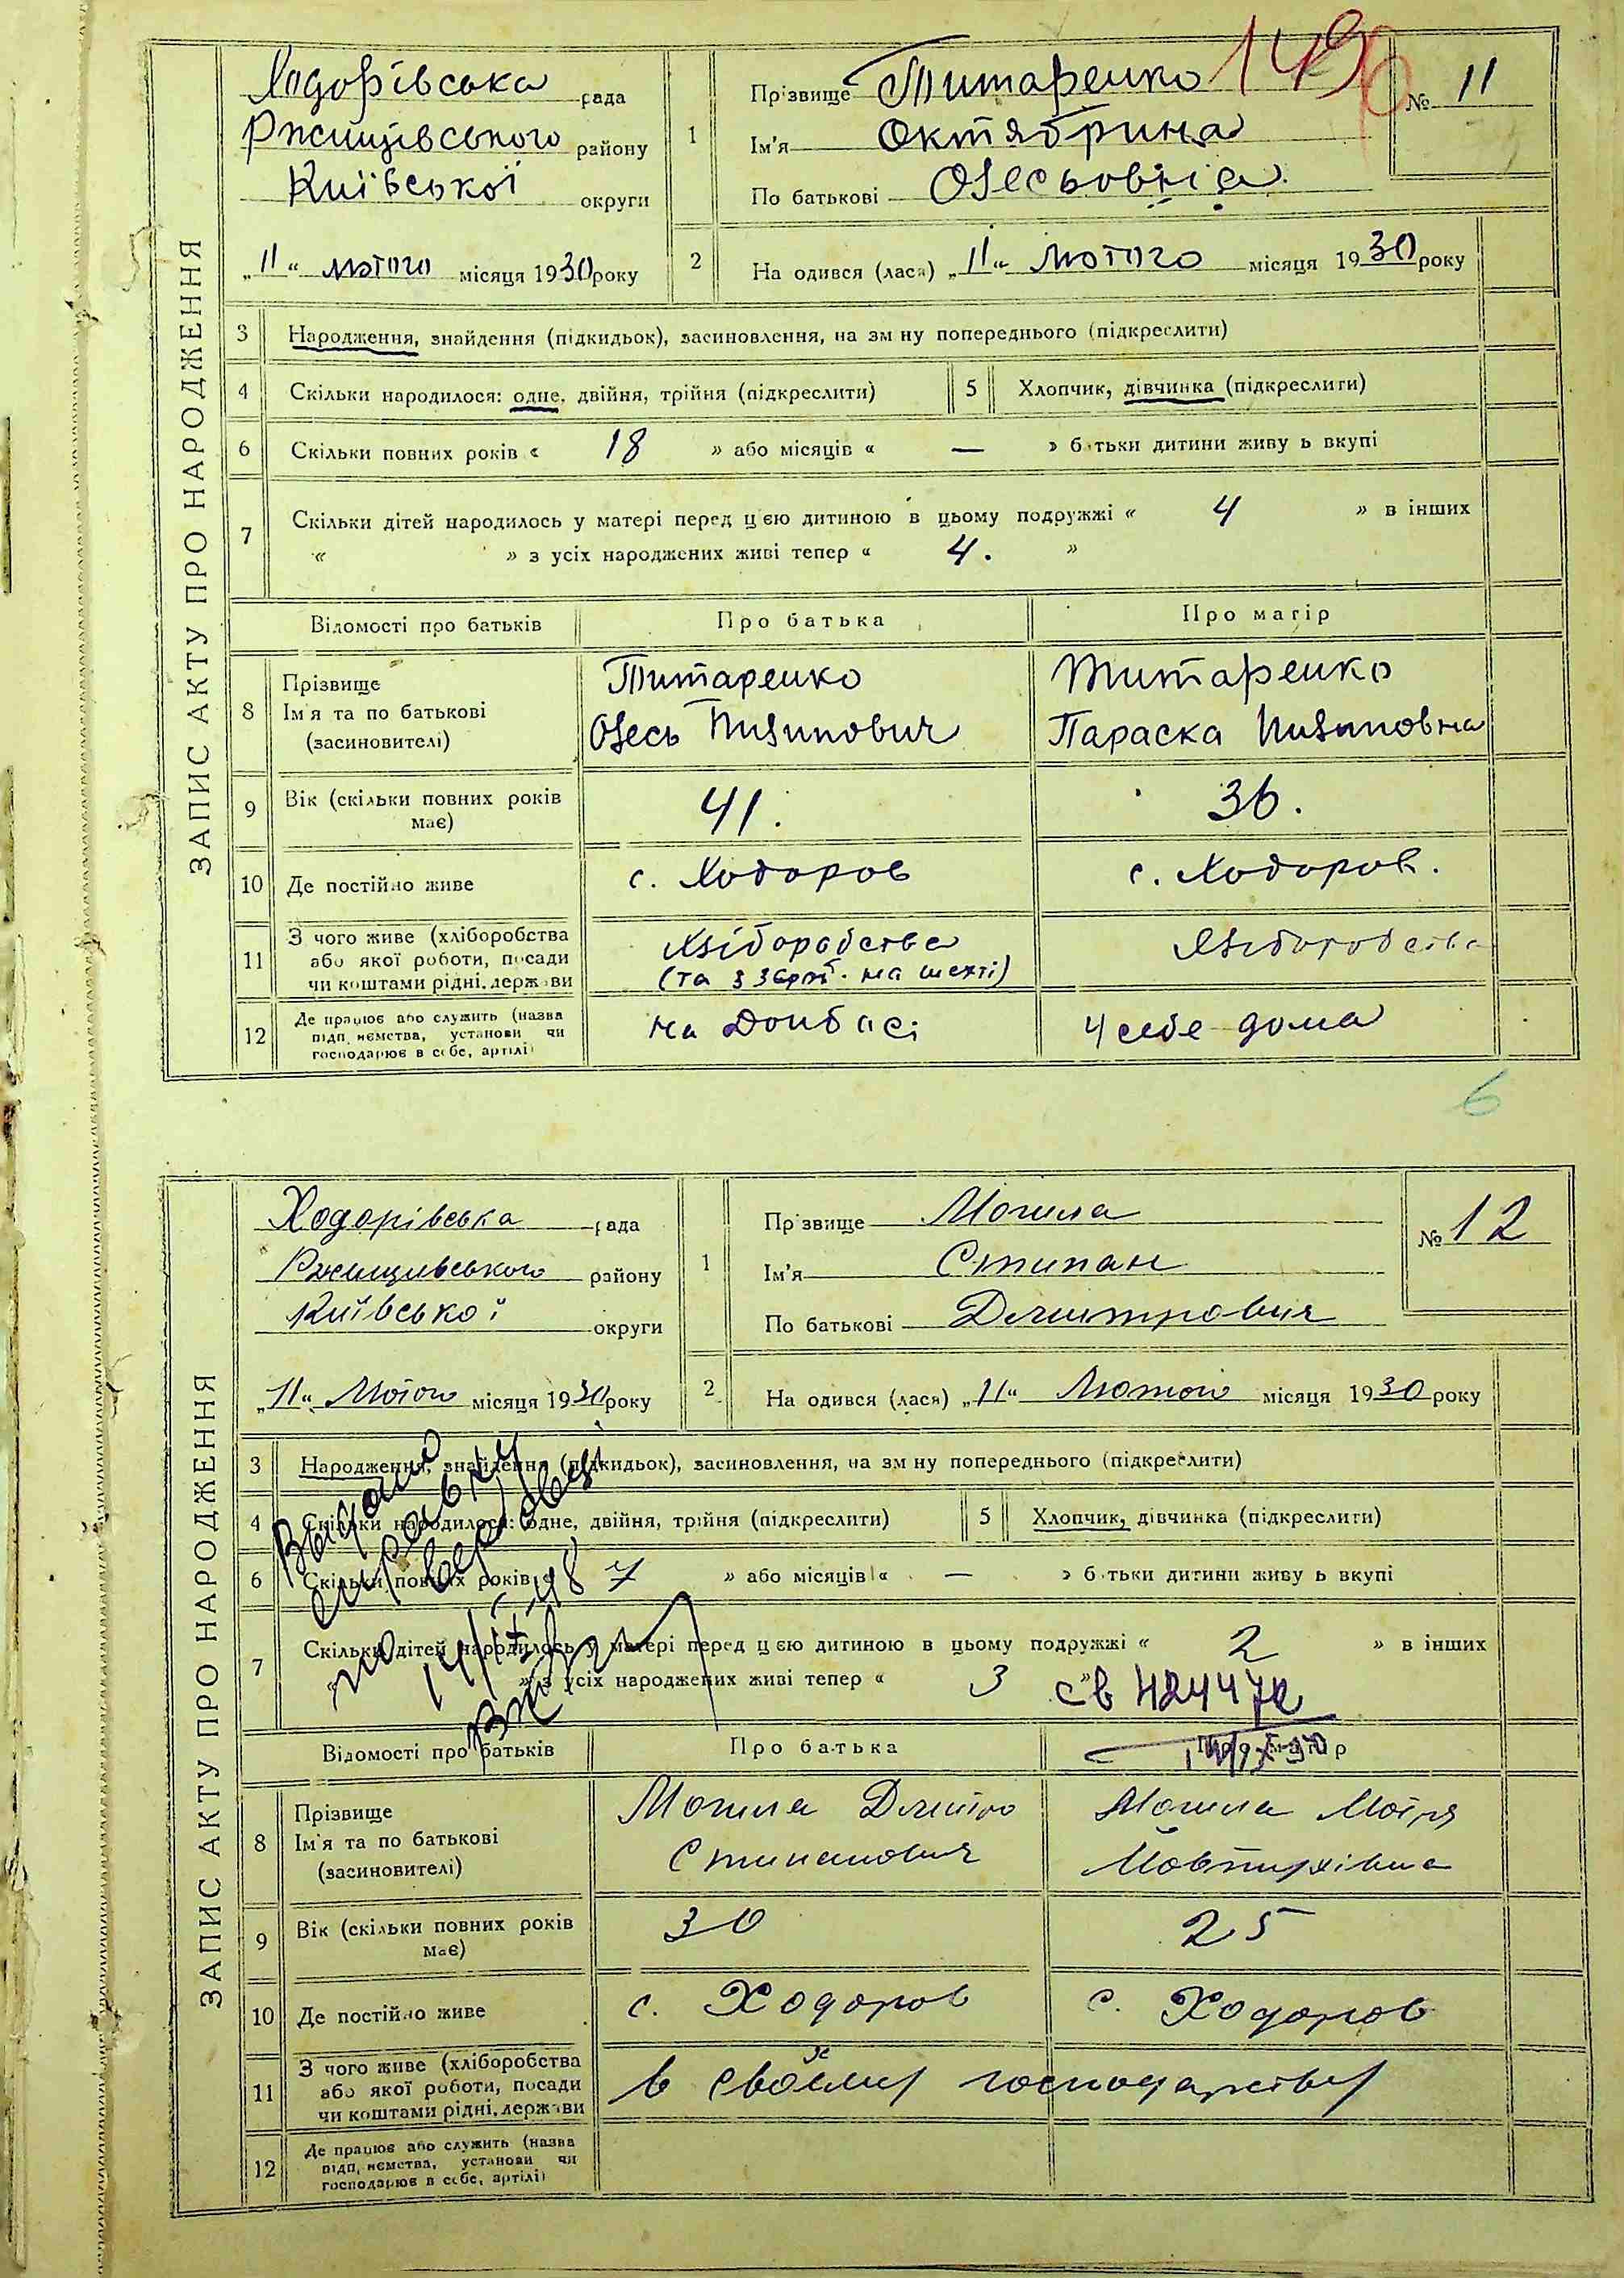 ЗАПИС АКТУ ПРО НАРОДЖЕННЯ
Ходорівська рада
Ржищівського району
Київської округи
„11“ лютого місяця 1930 року
1 Прізвище Титаренко
Ім'я Октябрина
По батькові Олесьовна
149
№ 11
2 На одився (лася) „11“ лютого місяця 1930 року
3 Народження, знайдення (підкидьок), засиновлення, на зм ну попереднього (підкреслити)
4 Скільки народилося: одне, двійня, трійня (підкреслити) 5 Хлопчик, дівчинка (підкреслити)
6 Скільки повних років « 18 » або місяців « — » б тьки дитини живу ь вкупі
7 Скільки дітей народилось у матері перед цією дитиною в цьому подружжі « 4 » в інших
« » з усіх народжених живі тепер « 4. »
Відомості про батьків Про батька Про матір
8 Прізвище Ім'я та по батькові (засиновителі)
Титаренко Олесь Пилипович
Титаренко Параска Пилиповна
9 Вік (скільки повних років має) 41. 36.
10 Де постійно живе с. Ходоров с. Ходоров.
11 З чого живе (хліборобства або якої роботи, посади чи коштами рідні, держави
хліборобства (та з зарпл. на шахті)
хліборобства
12 Де працює або служить (назва підп, ємства, установи чи господарює в себе, артілі)
на Донбасі
у себе дома
6
ЗАПИС АКТУ ПРО НАРОДЖЕННЯ
Ходорівська рада
Ржищивського району
Київської округи
„11“ Лютого місяця 1930 року
1 Прізвище Могила
Ім'я Стипан
По батькові Дмитрович
№ 12
2 На одився (лася) „11“ Лютого місяця 1930 року
3 Народження, знайдення (підкидьок), засиновлення, на зм ну попереднього (підкреслити)
4 Скільки народилося: одне, двійня, трійня (підкреслити) 5 Хлопчик, дівчинка (підкреслити)
6 Скільки повних років « 7 » або місяців « — » б тьки дитини живу ь вкупі
7 Скільки дітей народилось у матері перед цією дитиною в цьому подружжі « 2 » в інших
« » з усіх народжених живі тепер « 3 »
Видано
справку
14/IX-48
св 424472
Відомості про батьків Про батька Про матір
8 Прізвище Ім'я та по батькові (засиновителі)
Могила Дмитро Стипанович
Могила Мотря Йовтухівна
9 Вік (скільки повних років має) 30 25
10 Де постійно живе с. Ходоров с. Ходоров
11 З чого живе (хліборобства або якої роботи, посади чи коштами рідні, держави
в своёму господарству
12 Де працює або служить (назва підп, ємства, установи чи господарює в себе, артілі)